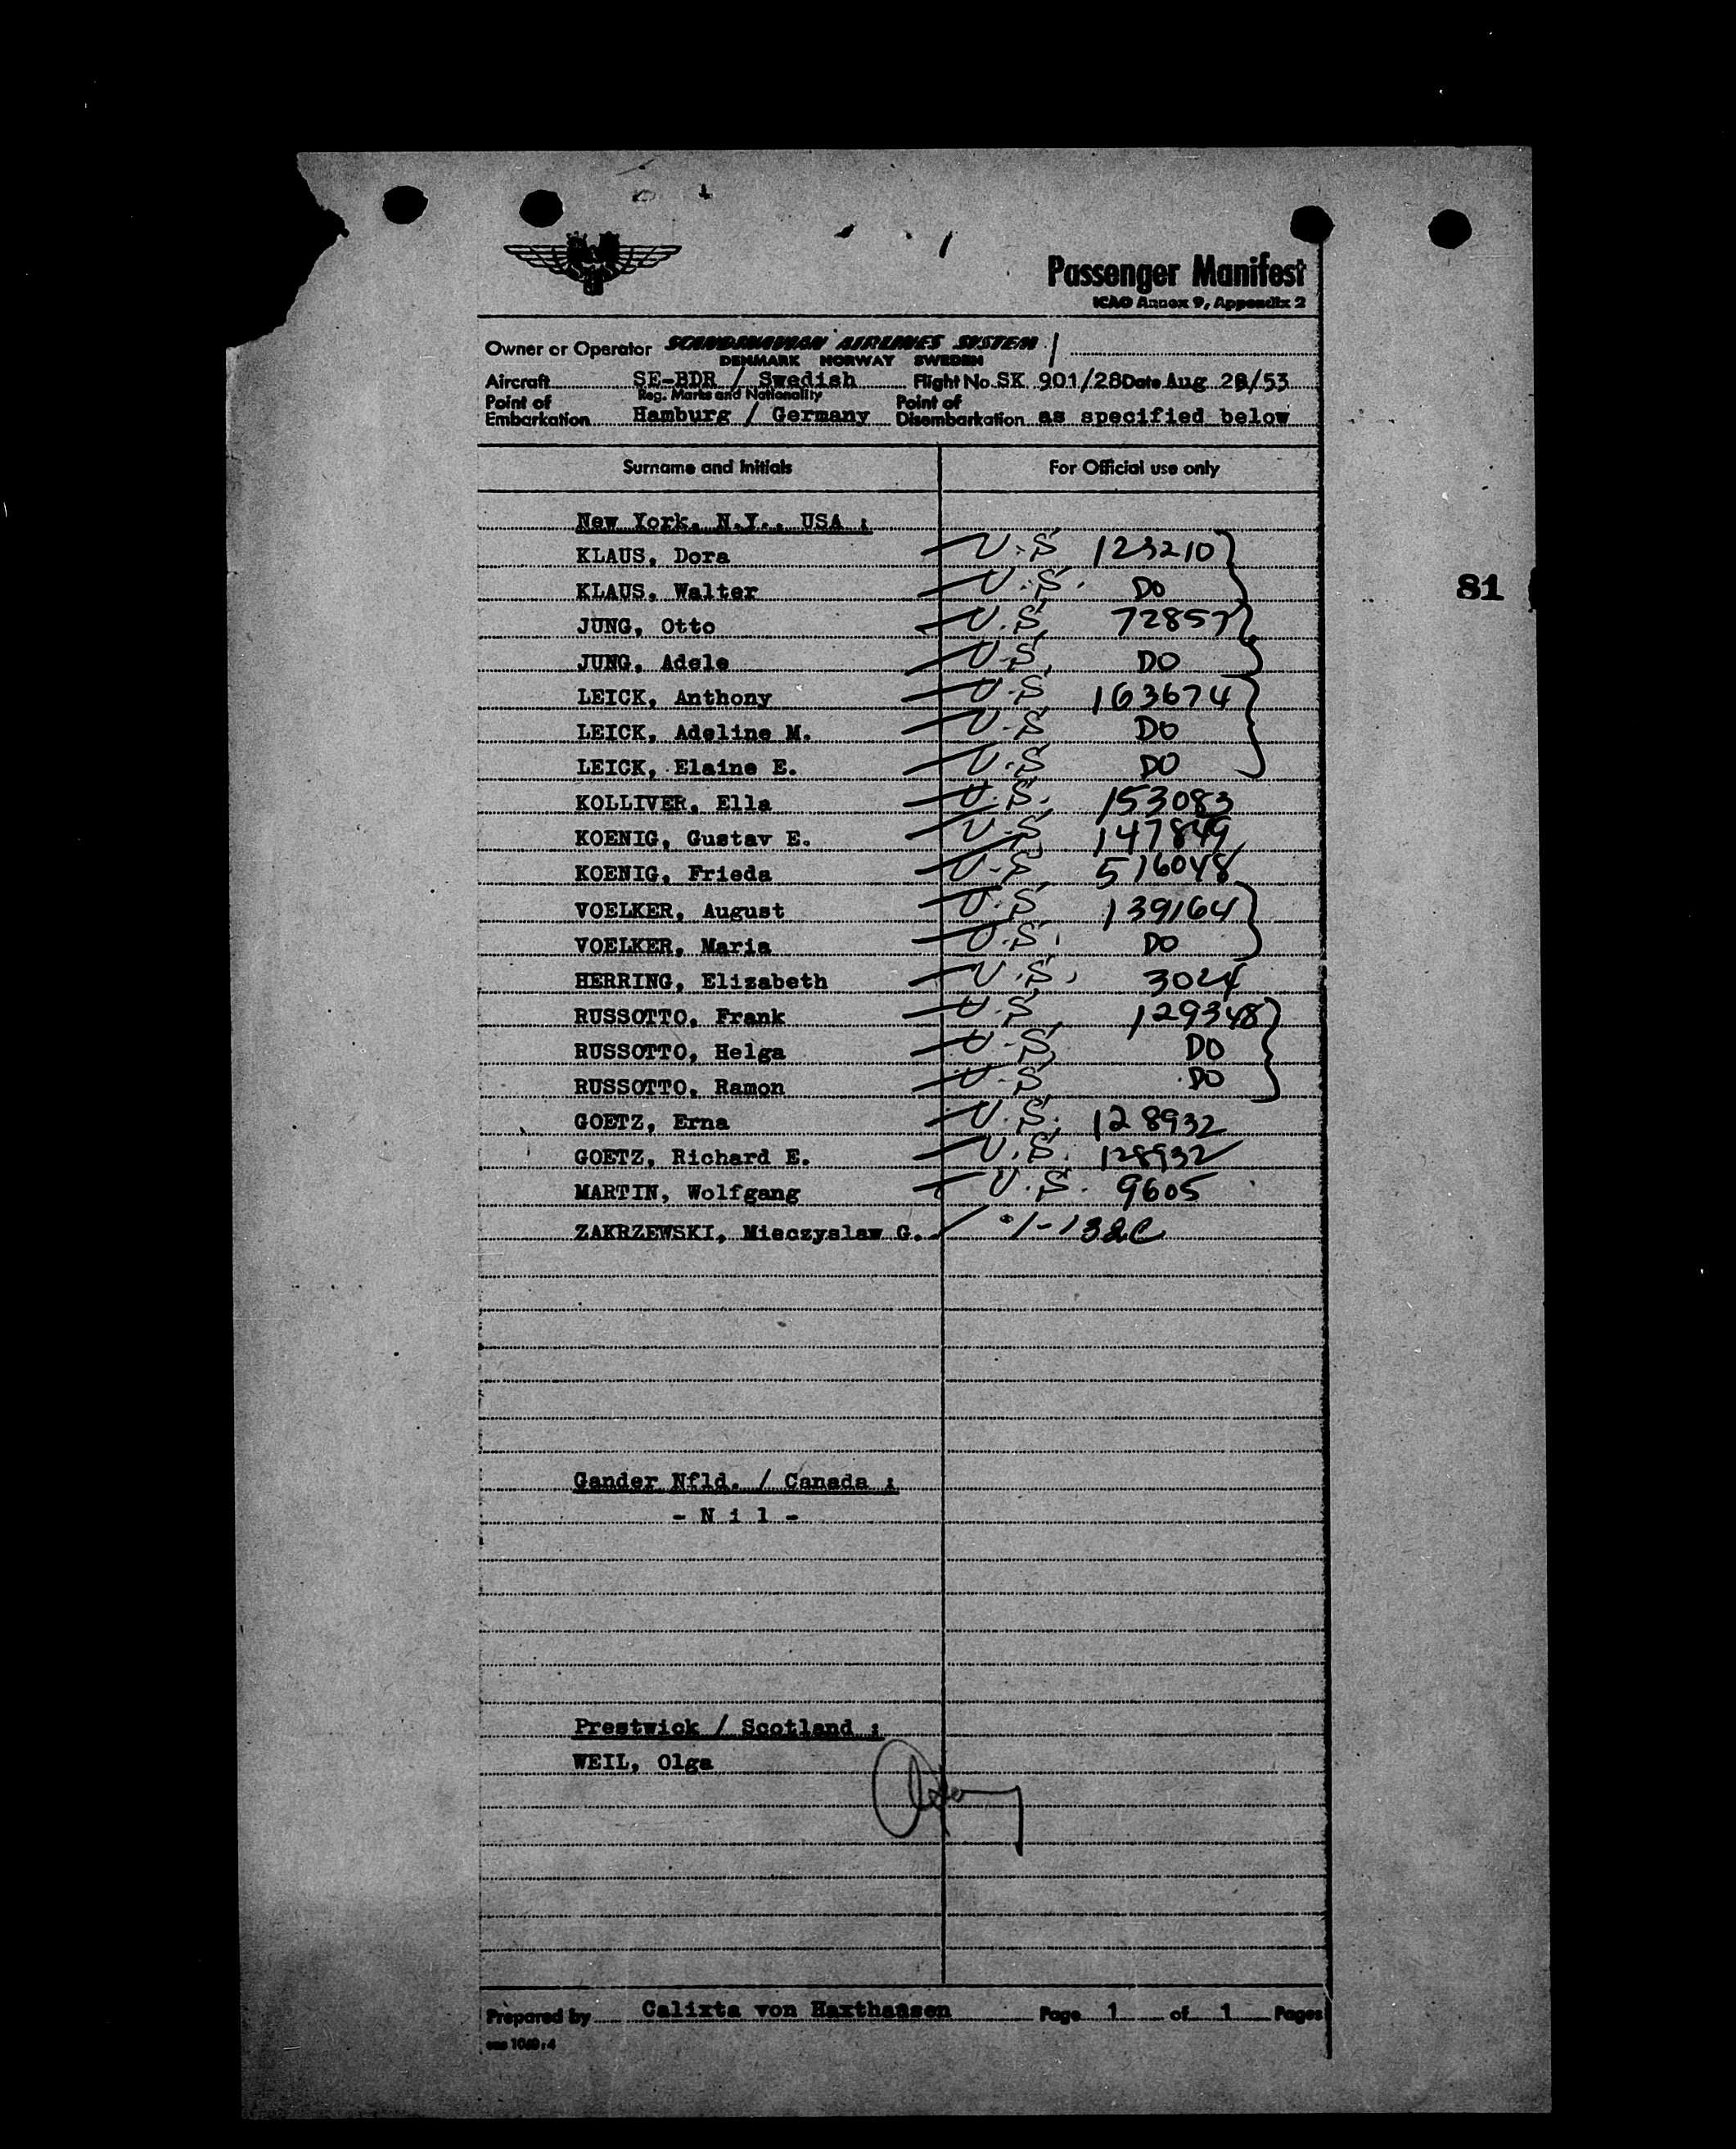 Passenger Manifest
ICAO Annex 9, Appendix 2
Owner or Operator SCANDINAVIAN AIRLINES SYSTEM
DENMARK NORWAY SWEDEN
Aircraft SE-BDR / Swedish Flight No. SK 901/28 Date Aug 28/53
Reg. Marks and Nationality
Point of Embarkation Hamburg / Germany Point of Disembarkation as specified below
81
Surname and Initials For Official use only
New York, N.Y., USA :
KLAUS, Dora U.S 123210
KLAUS, Walter U.S. DO
JUNG, Otto U.S. 72857
JUNG, Adele U.S. DO
LEICK, Anthony U.S 163674
LEICK, Adeline M. U.S DO
LEICK, Elaine E. U.S DO
KOLLIVER, Ella U.S. 153083
KOENIG, Gustav E. U.S 147849
KOENIG, Frieda U.S 516048
VOELKER, August U.S 139164
VOELKER, Maria U.S. DO
HERRING, Elizabeth U.S. 3024
RUSSOTTO, Frank U.S 129348
RUSSOTTO, Helga U.S. DO
RUSSOTTO, Ramon U.S DO
GOETZ, Erna U.S. 128932
GOETZ, Richard E. U.S. 128932
MARTIN, Wolfgang U.S. 9605
ZAKRZEWSKI, Mieczyslaw G.
Gander Nfld. / Canada :
- N i l -
Prestwick / Scotland :
WEIL, Olga
Prepared by Calixta von Haxthausen Page 1 of 1 Pages